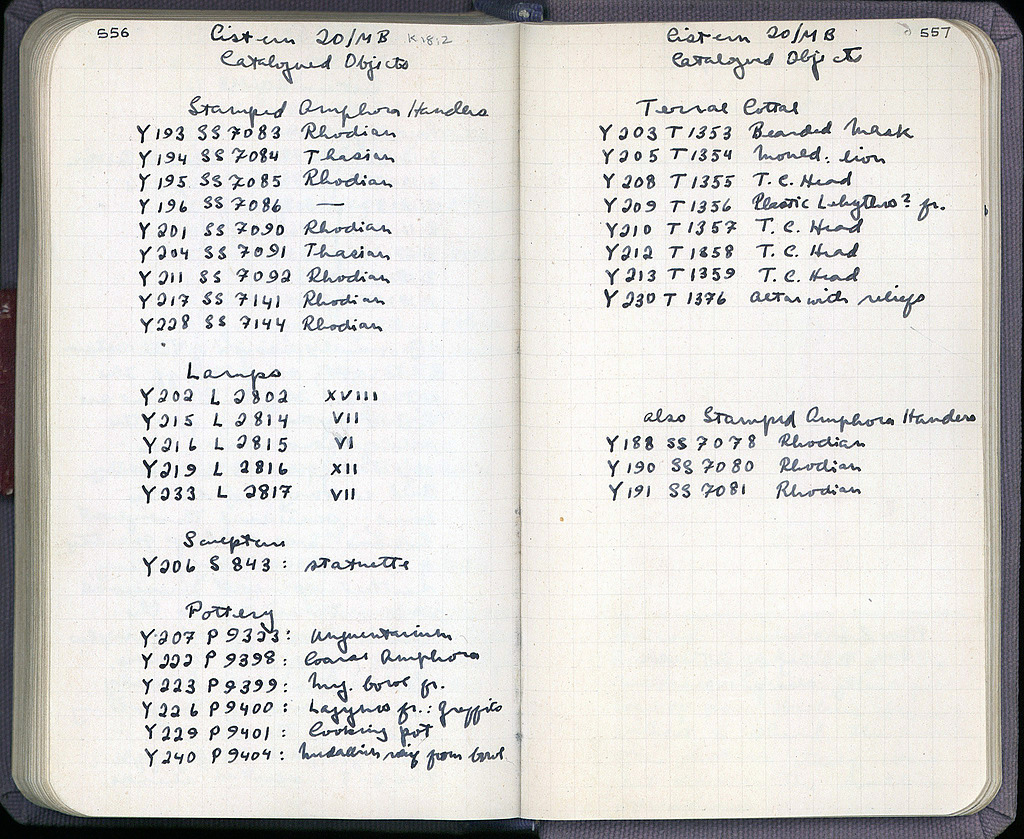 556
Cistern 20/MB K 18:2
Catalogued Objects
Stamped Amphora Handles
Y 193 SS 7083 Rhodian
Y 194 SS 7084 Thasian
Y 195 SS 7085 Rhodian
Y 196 SS 7086 —
Y 201 SS 7090 Rhodian
Y 204 SS 7091 Thasian
Y 211 SS 7092 Rhodian
Y 217 SS 7141 Rhodian
Y 228 SS 7144 Rhodian
Lamps
Y 202 L 2802 XVIII
Y 215 L 2814 VII
Y 216 L 2815 VI
Y 219 L 2816 XII
Y 233 L 2817 VII
Sculpture
Y 206 S 843 : statuette
Pottery
Y 207 P 9323 : Unguentarium
Y 222 P 9398 : Coarse Amphora
Y 223 P 9399 : Meg. bowl fr.
Y 226 P 9400 : Lagynos fr. : graffito
Y 229 P 9401 : Cooking pot
Y 240 P 9404 : Medallion from bowl
557
Cistern 20/MB
Catalogued Objects
Terra Cottas
Y 203 T 1353 Bearded Mask
Y 205 T 1354 Mould: lion
Y 208 T 1355 T.C. Head
Y 209 T 1356 Plastic Lekythos? fr.
Y 210 T 1357 T.C. Head
Y 212 T 1358 T.C. Head
Y 213 T 1359 T.C. Head
Y 230 T 1376 Altar with reliefs
also Stamped Amphora Handles
Y 188 SS 7078 Rhodian
Y 190 SS 7080 Rhodian
Y 191 SS 7081 Rhodian